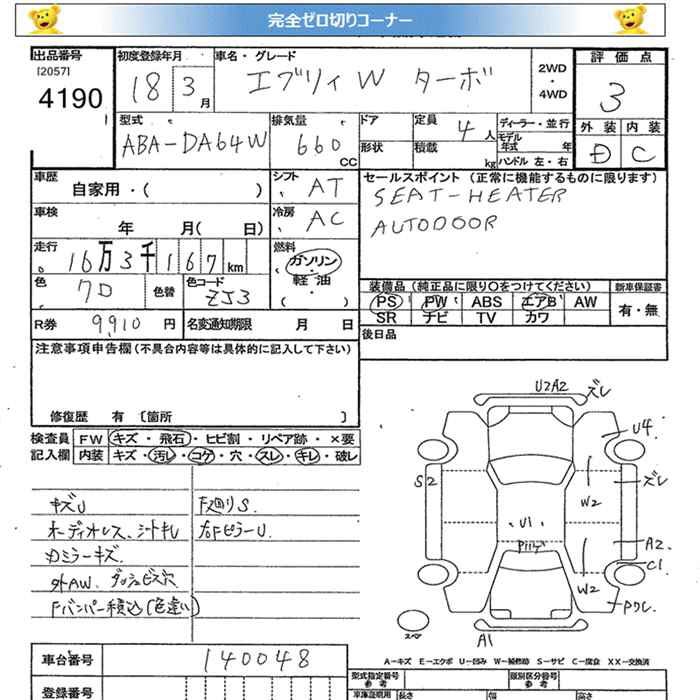 完全ゼロ切りコーナー
出品番号 初度登録年月 車名・グレード 評価点
[2057]
4190 18 3月 エブリィW ターボ 2WD・4WD 3
外装 内装
D C
型式 排気量 ドア 定員 ディーラー・並行
ABA-DA64W 660cc 4人 モデル年式 年
形状 積載 kg ハンドル 左・右
車歴 シフト セールスポイント(正常に機能するものに限ります)
自家用・( ) AT SEAT-HEATER
車検 冷房 AUTODOOR
年 月( 日) AC
走行 燃料
16万3千167km ガソリン・軽油・( )
色 色替 色コード 装備品(純正品に限り○をつけてください) 新車保証書
7D ZJ3 PS PW ABS エアB AW 有・無
SR ナビ TV カワ
R券 9910円 名変通知期限 月 日 後日品
注意事項申告欄(不具合内容等は具体的に記入して下さい)
修復歴 有〔箇所 〕
検査員 FW キズ・飛石・ヒビ割・リペア跡・×要
記入欄 内装 キズ・汚レ・コゲ・穴・スレ・キレ・破レ
キズU F廻りS.
オーディオレス、シートキレ 右FピラーU.
カミラーキズ
外AW、ダッシュビス穴
Fバンパー積込(色違い)
U2A2 ズレ
U4.
S2 ズレ
W2
U1
Pリレキ
A2.
C1
W2
Pワレ.
スペア
A1
A-キズ E-エクボ U-凹み W-補修跡 S-サビ C-腐食 XX-交換済
車台番号 140048
登録番号
型式指定番号 参考 類別区分番号 参考
車庫証明用 長さ 幅 高さ